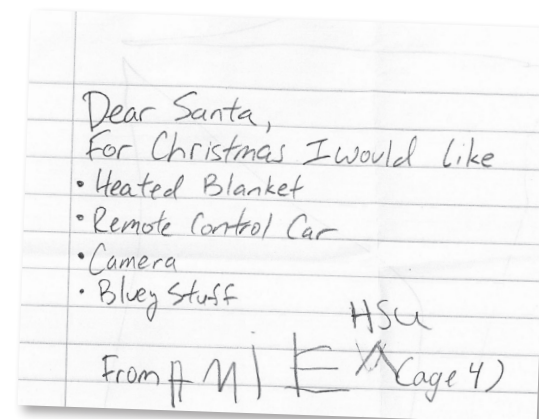 Dear Santa,
For Christmas I would like
• Heated Blanket
• Remote Control Car
• Camera
• Bluey Stuff
HSU
From (age 4)